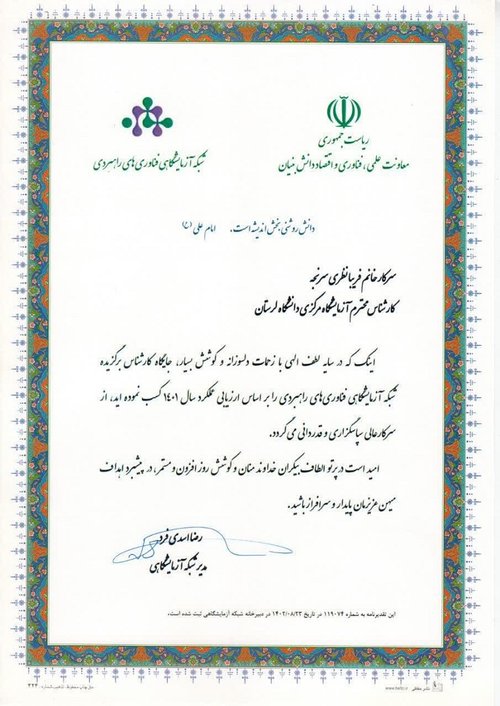 ریاست جمهوری
معاونت علمی، فناوری و اقتصاد دانش بنیان
شبکه آزمایشگاهی فناوری‌های راهبردی
دانش روشنی بخش اندیشه است. امام علی (ع)
سرکار خانم فریبا نظری سرنجه
کارشناس محترم آزمایشگاه مرکزی دانشگاه لرستان
اینک که در سایه لطف الهی با زحمات دلسوزانه و کوشش بسیار، جایگاه کارشناس برگزیده
شبکه آزمایشگاهی فناوری‌های راهبردی را بر اساس ارزیابی عملکرد سال ۱۴۰۱ کسب نموده اید، از
سرکارعالی سپاسگزاری و قدردانی می‌گردد.
امید است در پرتو الطاف بیکران خداوند منان و کوشش روز افزون و مستمر، در پیشبرد اهداف
میهن عزیزمان پایدار و سرافراز باشید.
رضا اسدی فرد
مدیر شبکه آزمایشگاهی
این تقدیرنامه به شماره ۱۱۹۰۷۴ در تاریخ ۱۴۰۲/۰۸/۲۳ در دبیرخانه شبکه آزمایشگاهی ثبت شده است.